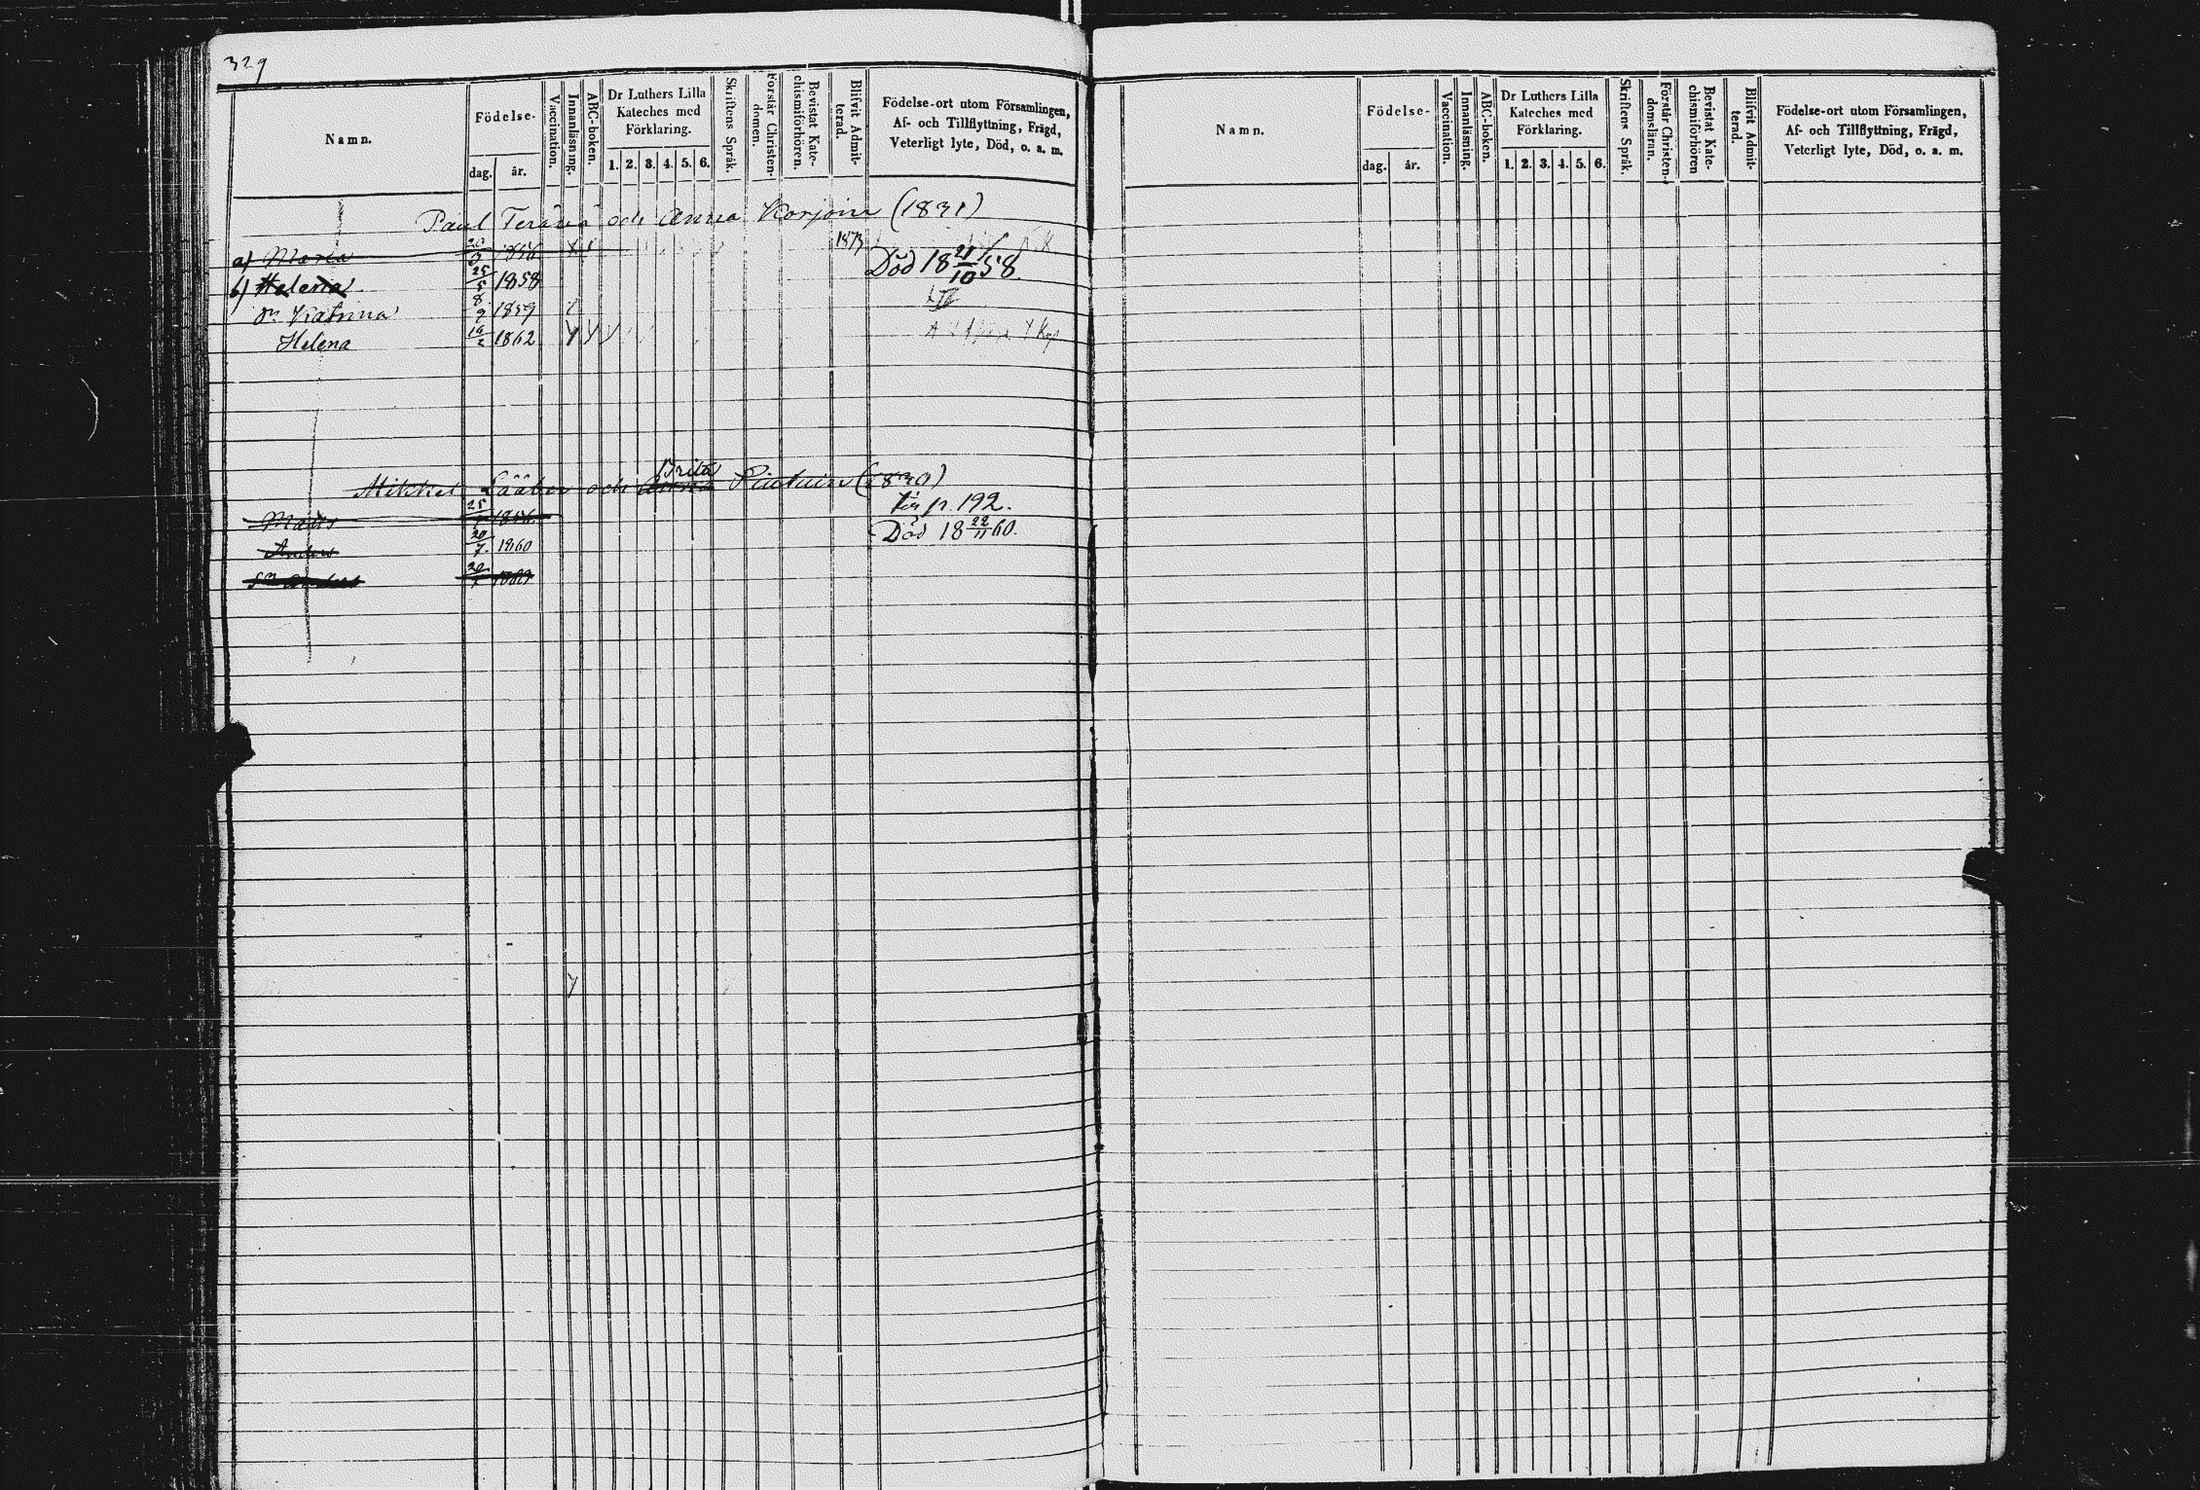 329
Namn.
Födelse-
dag.
år.
Vaccination.
Innanläsning.
ABC-boken.
Dr Luthers Lilla
Kateches med
Förklaring.
1. 2. 3. 4. 5. 6.
Skriftens Språk.
Förstår Christen-
domen.
Bevistat Kate-
chismiförhören.
Blifvit Admit-
terad.
Födelse-ort utom Församlingen,
Af- och Tillflyttning, Frägd,
Veterligt lyte, Död, o. a. m.
Paul Terävä och Anna Korjoin (1831)
a) Maria 1856 1873
b) Helena 25/5 1858 Död 18 21/10 58.
Dr Katrina 8/9 1859
Helena 1862
Mikkel Lääber och Brita (1830)
Matts 25 1856 för p. 192.
Anders 20/7 1860 Död 18 22/11 60.
Sn Anders
Namn.
Födelse-
dag.
år.
Vaccination.
Innanläsning.
ABC-boken.
Dr Luthers Lilla
Kateches med
Förklaring.
1. 2. 3. 4. 5. 6.
Skriftens Språk.
Förstår Christen-
domsläran.
Bevistat Kate-
chismiförhören
Blifvit Admit-
terad.
Födelse-ort utom Församlingen,
Af- och Tillflyttning, Frägd,
Veterligt lyte, Död, o. a. m.